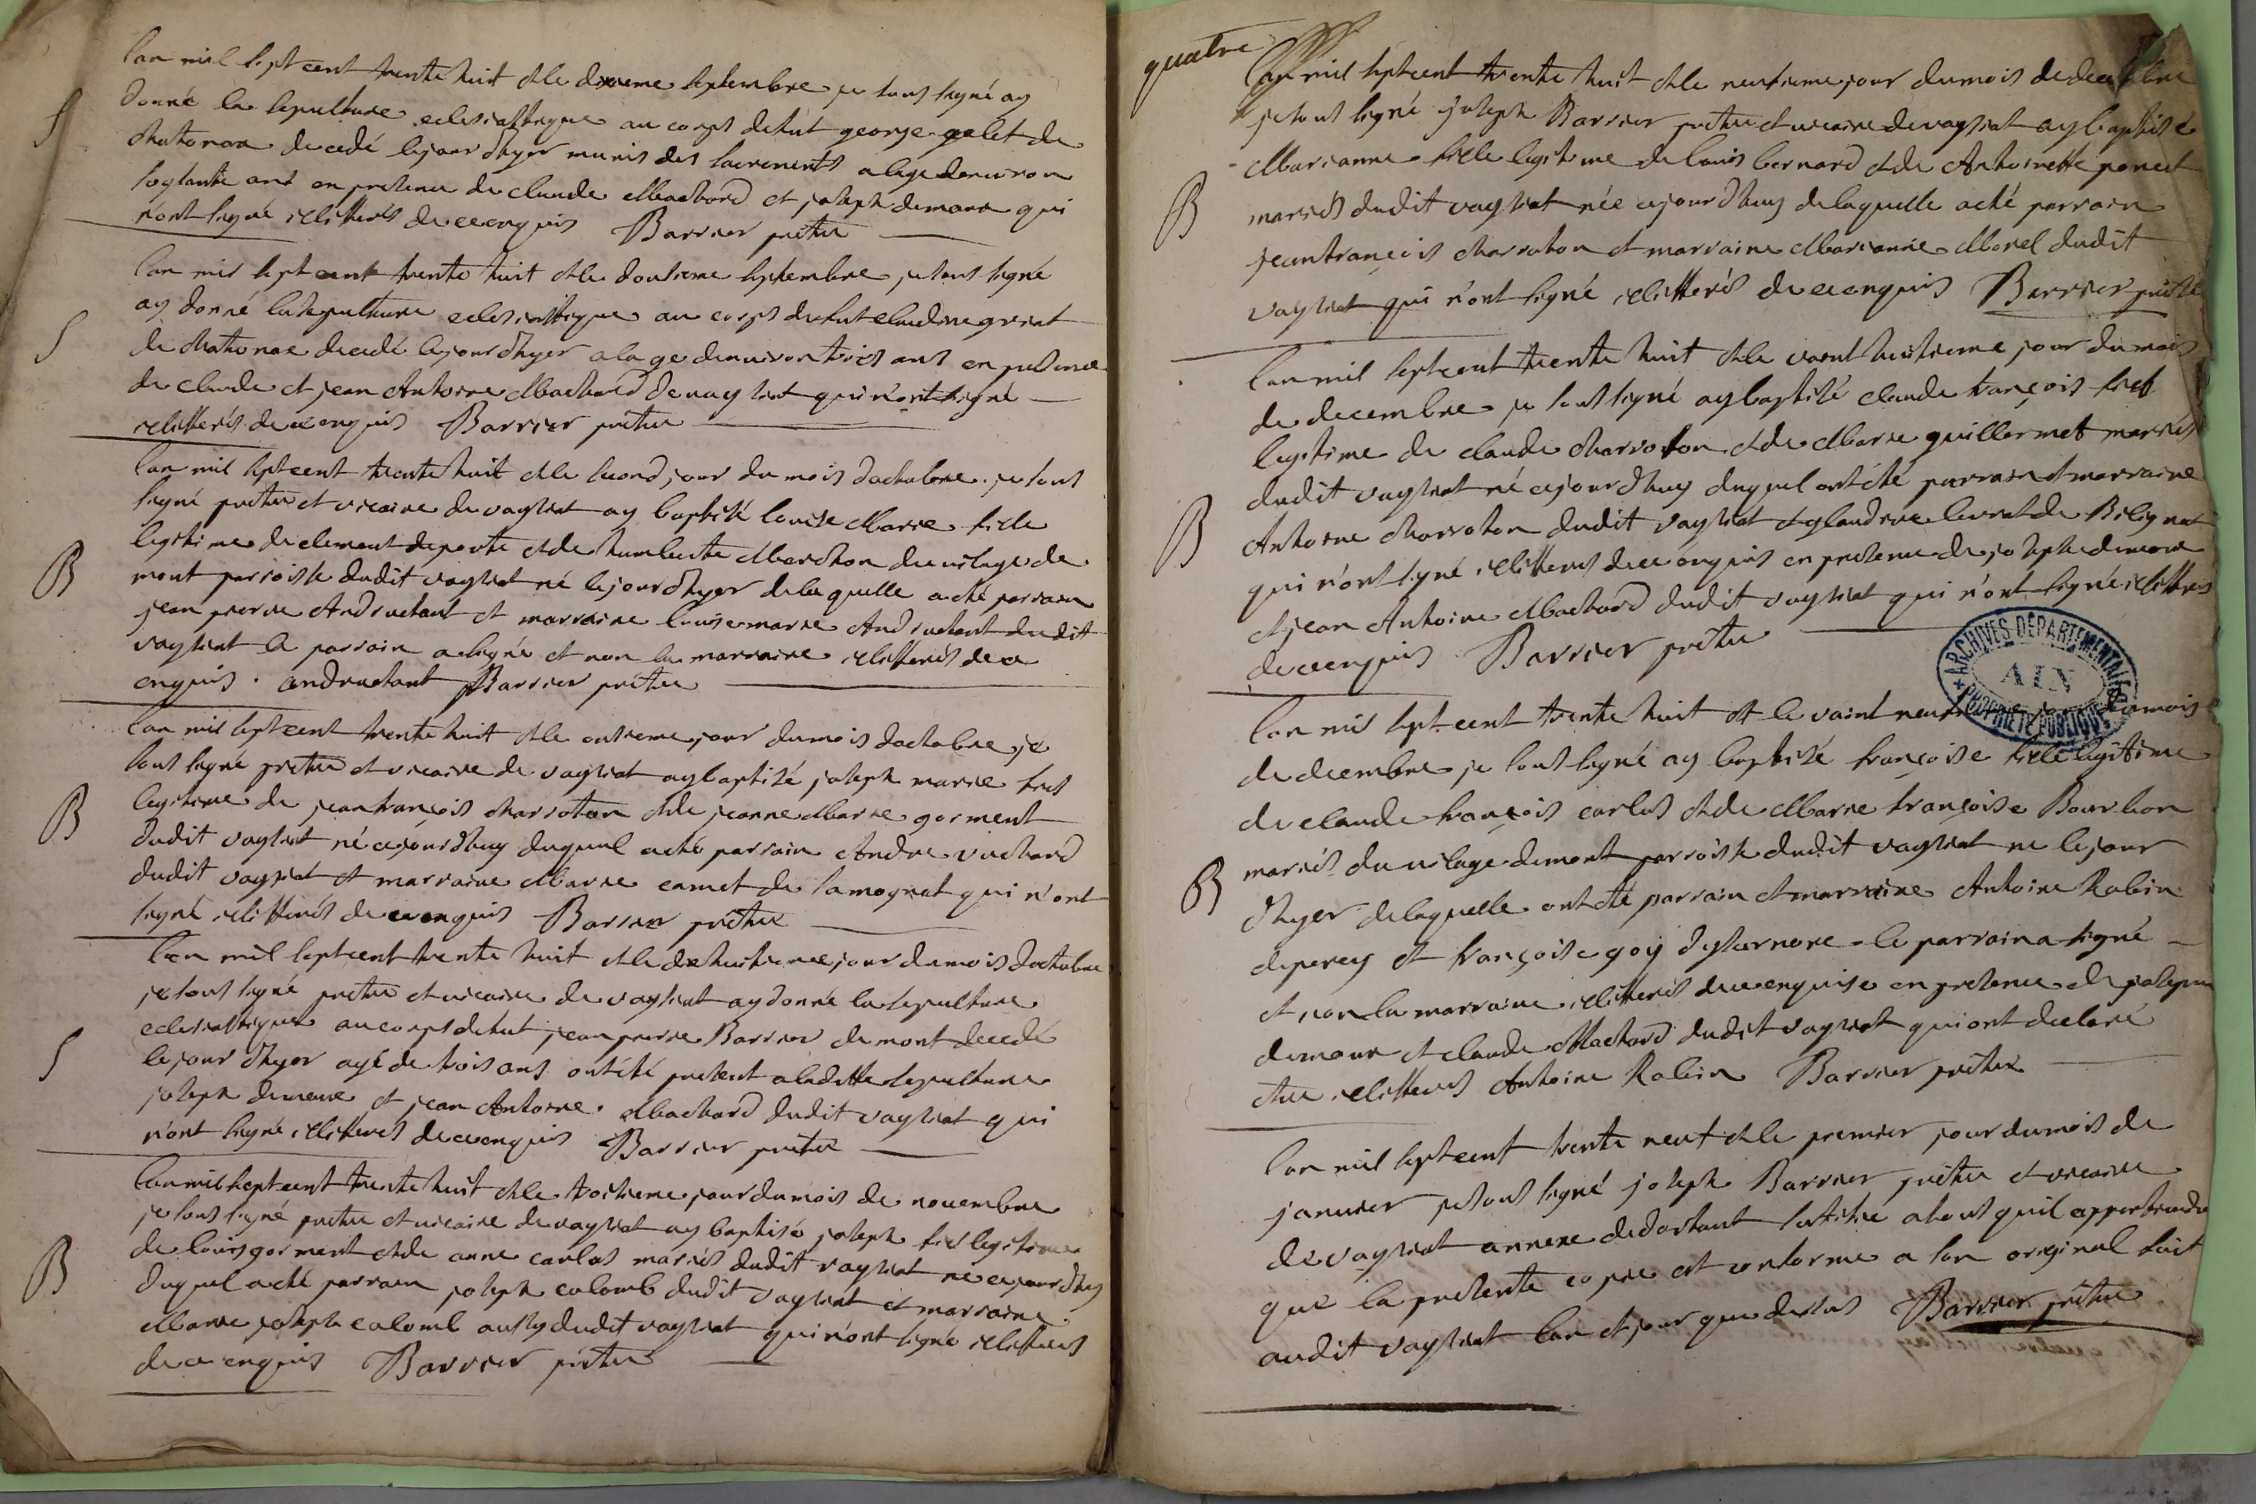 lan mil sept cent trente huit et le dixieme septembre je sous signé ay
donné la sepulture eclesiastique au corps defut george gelet de
chatonax decedé le jour dhyer munis des sacrements a lage denviron
soixante ans en presence de claude Machard et joseph demare qui
n'ont signé illitterés de ce enquis Barrier prêtre
S
lan mil sept cent trente huit et le douzieme septembre je sous signé
ay donné la sepulture eclesiastique au corps defut claudine griat
de chatonax decedé le jour dhyer a lage denviron trois ans en presence
de claude et jean Antoine Machard de vaysiat qui n'ont signé
illitterés de ce enquis Barrier prêtre
S
lan mil sept cent trente huit et le second jour du mois doctobre je sous
signé prêtre et vicaire de vaysiat ay baptisé louise Marie fille
legitime de clement deporte et de humberte Marchon du vilage de
mont parroisse dudit vaysiat né le jour dhyer de laquelle a eté parrain
jean pierre Andructant et marraine louise marie Andructant dudit
vaysiat le parrain a signé et non la marraine illitterés de ce
enquis. andructant Barrier prêtre
B
lan mil sept cent trente huit et le onzieme jour du mois doctobre je
sous signé prêtre et vicaire de vaysiat ay baptisé joseph marie fils
legitime de jean françois charroton et de jeanne Marie gorment
dudit vaysiat né ce jourdhuy duquel a eté parrain Andre vuchard
dudit vaysiat et marraine Marie camet de samognat qui n'ont
signé illitterés de ce enquis Barrier prêtre
B
lan mil sept cent trente huit et le dix huitieme jour du mois doctobre
je sous signé prêtre et vicaire de vaysiat ay donné la sepulture
eclesiastique au corps defut jean pierre Barrier de mont decedé
le jour dhyer agé de trois ans ont été present a laditte sepulture
joseph demare et jean Antoine Machard dudit vaysiat qui
n'ont signé illitterés de ce enquis Barrier prêtre
S
lan mil sept cent trente huit et le troisieme jour du mois de novembre
je sous signé prêtre et vicaire de vaysiat ay baptisé joseph fils legitime
de louis gorment et de anne carlas mariés dudit vaysiat né ce jourdhuy
duquel a eté parrain joseph colomb dudit vaysiat et marraine
Marie joseph colomb aussy dudit vaysiat qui n'ont signé illitterés
de ce enquis Barrier prêtre
B
quatre
lan mil sept cent trente huit et le neufieme jour du mois de decembre
je sous signé joseph Barrier prêtre et vicaire de vaysiat ay baptisé
Marianne fille legitime de louis bernard et de Antoinette poncet
mariés dudit vaysiat née ce jourdhuy de laquelle a eté parrain
jean françois charroton et marraine Marianne Morel dudit
vaysiat qui n'ont signé illitterés de ce enquis Barrier prêtre
B
lan mil sept cent trente huit et le vaint huitieme jour du mois
de decembre je sous signé ay baptisé claude françois fils
legitime de claude charroton et de Marie guillermet mariés
dudit vaysiat né ce jourdhuy duquel ont été parrain et marraine
Antoine charroton dudit vaysiat et glaudine levrat de Bélignat
qui n'ont signé illitterés de ce enquis en presence de joseph demare
et jean Antoine Machard dudit vaysiat qui n'ont signé illitterés
de ce enquis Barrier prêtre
B
ARCHIVES DÉPARTEMENTALES
AIN
PROPRIÉTÉ PUBLIQUE
lan mil sept cent trente huit et le vaint neufieme jour du mois
de decembre je sous signé ay baptisé françoise fille legitime
de claude françois carlas et de Marie françoise Bourbon
mariés du vilage de mont parroisse dudit vaysiat ne le jour
dhyer de laquelle ont eté parrain et marraine Antoine Rabin
de perey et françoise goÿ dysernore le parrain a signé
et non la marraine illitterés de ce enquise en presence de joseph
demare et claude Machard dudit vaysiat qui ont declaré
etre illitterés Antoine Rabin Barrier prêtre
B
lan mil sept cent trente neuf et le premier jour du mois de
janvier je sous signé joseph Barrier prêtre et vicaire
de vaysiat annexe de dortant certifie a tous quil appartiendra
que la presente copie est conforme a son original fait
audit vaysiat lan et jour que dessus Barrier prêtre